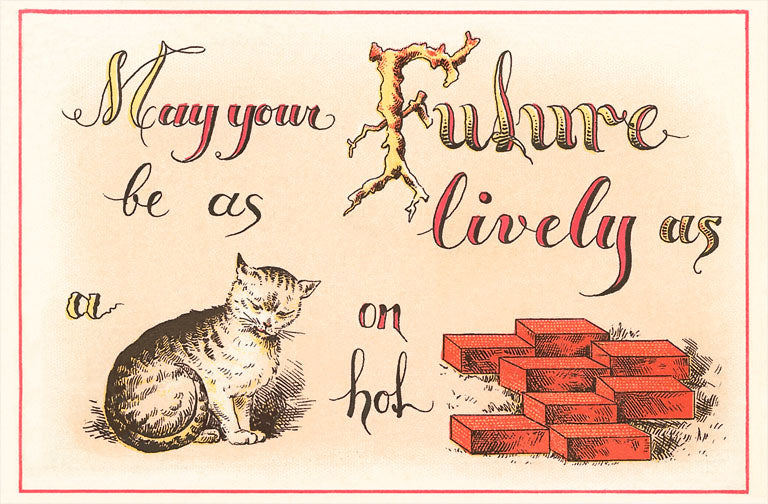 May your Future
be as lively as
a on
hot